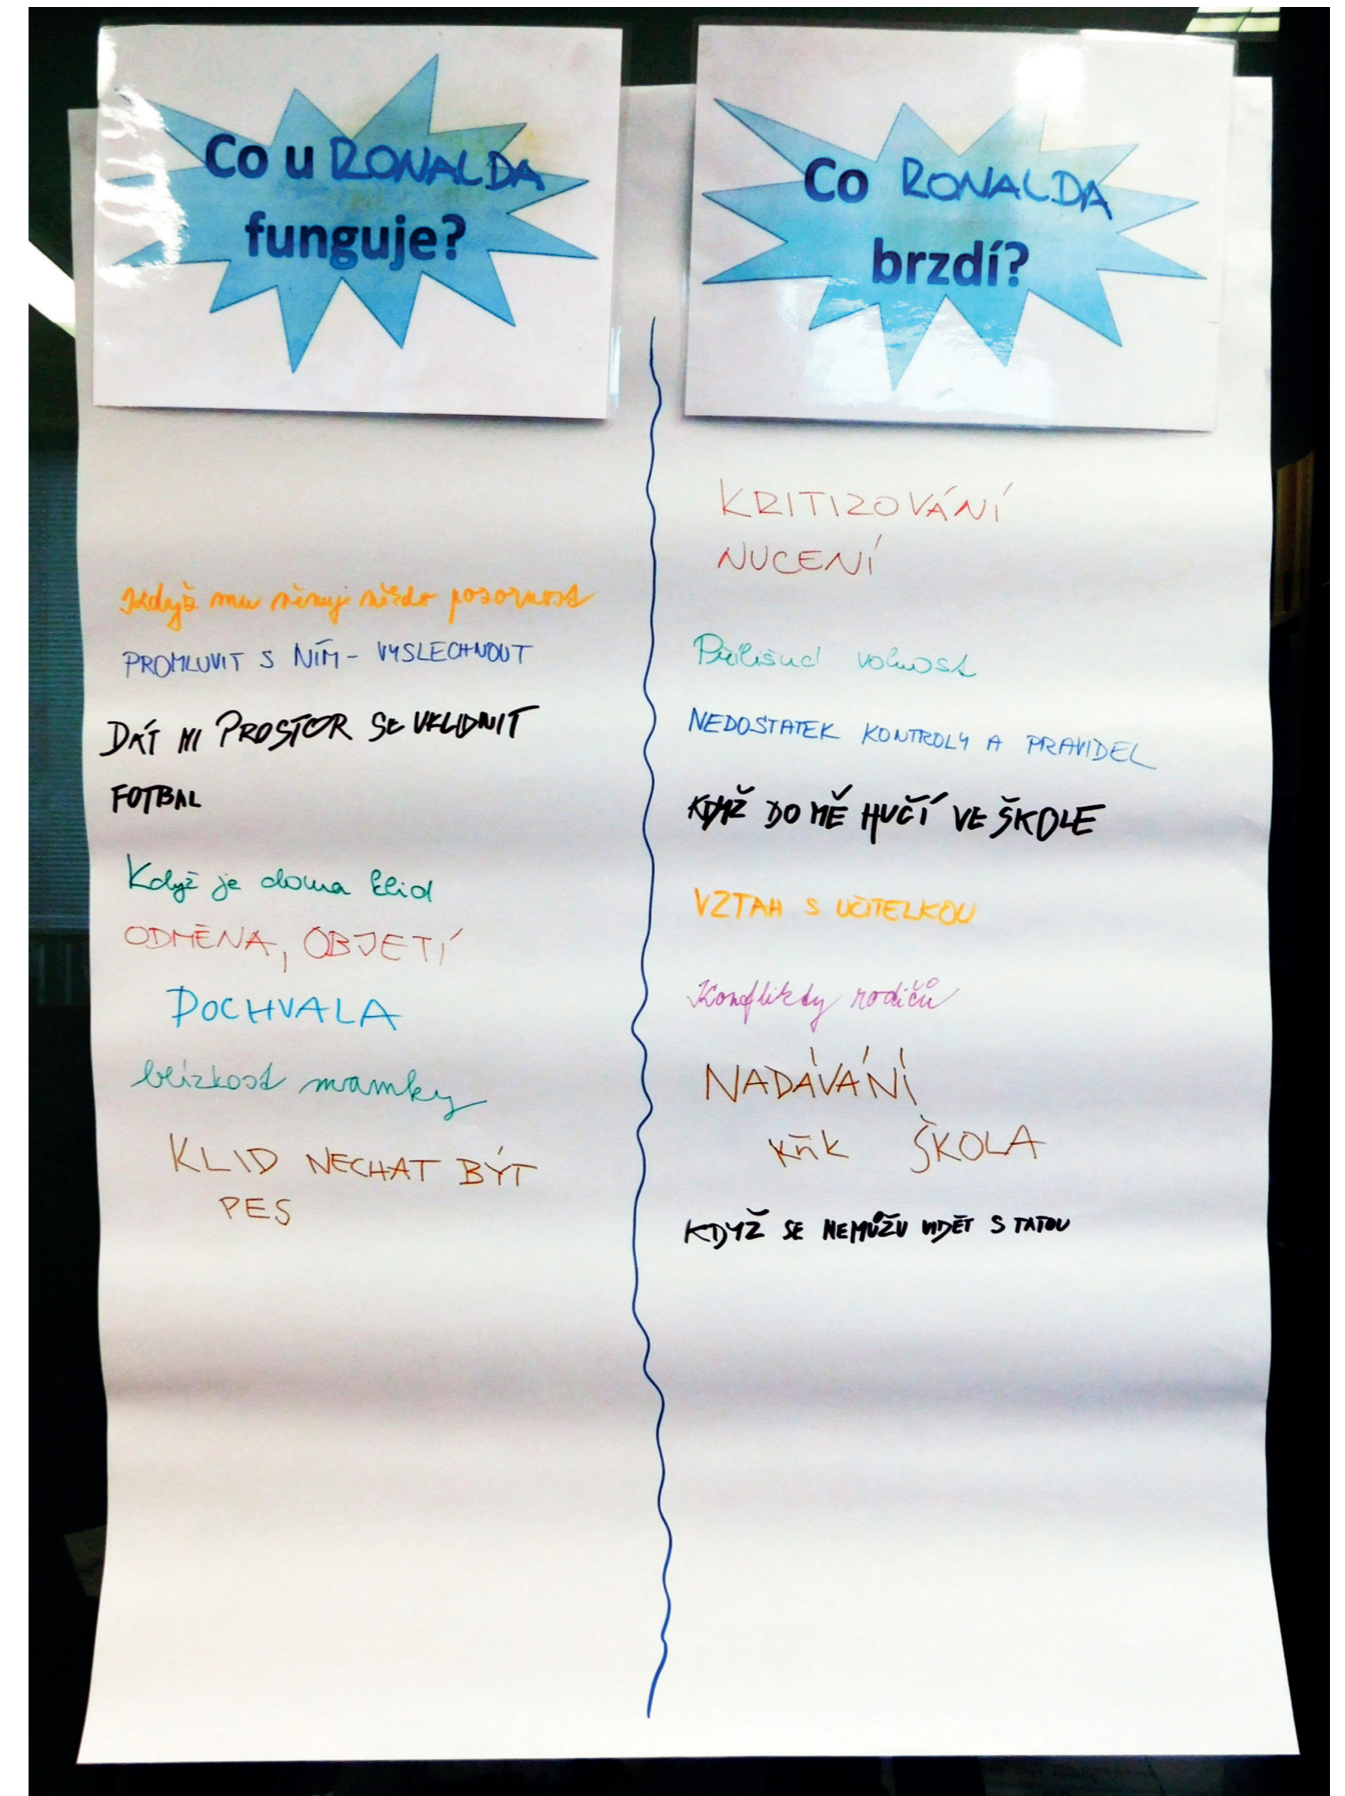 Co u RONALDA
funguje?
Když mu věnuje někdo pozornost
PROMLUVIT S NÍM - VYSLECHNOUT
DÁT MI PROSTOR SE UKLIDNIT
FOTBAL
Když je doma klid
ODMĚNA, OBJETÍ
POCHVALA
blízkost mamky
KLID NECHAT BÝT
PES
Co RONALDA
brzdí?
KRITIZOVÁNÍ
NUCENÍ
Přílišná volnost
NEDOSTATEK KONTROLY A PRAVIDEL
KDYŽ DO MĚ HUČÍ VE ŠKOLE
VZTAH S UČITELKOU
Konflikty rodičů
NADÁVÁNÍ
KŘIK ŠKOLA
KDYŽ SE NEMŮŽU VIDĚT S TATOU